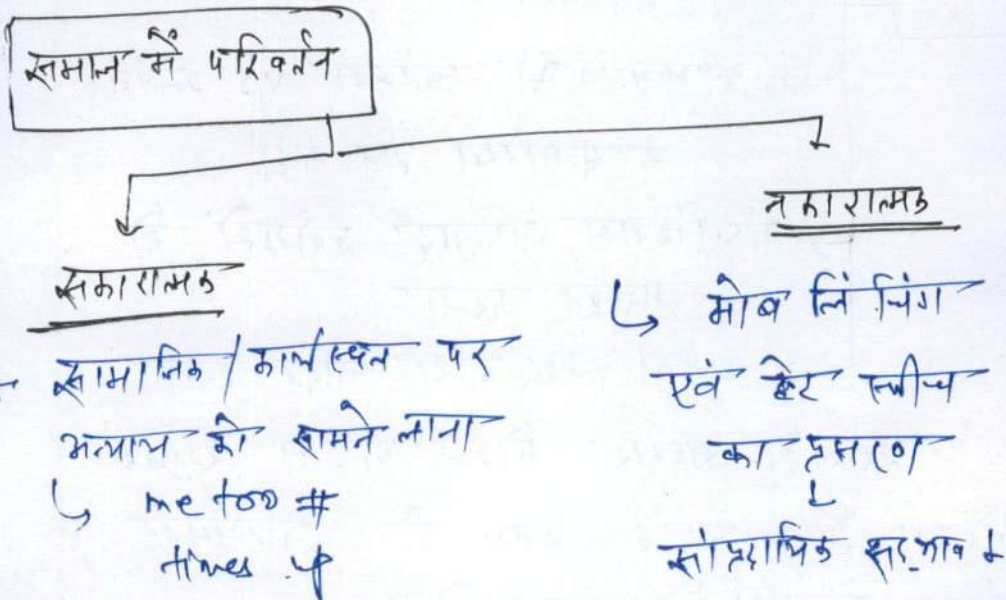 समाज में परिवर्तन
सकारात्मक
सामाजिक / कार्यस्थल पर
अन्याय को सामने लाना
↳ me too #
times up
नकारात्मक
↳ मोब लिंचिंग
एवं हेट स्पीच
का प्रसारण
↓
सांप्रदायिक सद्भाव ↓